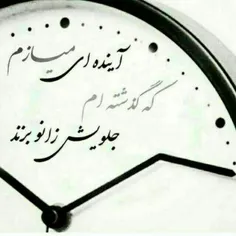 آینده ای میسازم
که گذشته ام
جلویش زانو بزند